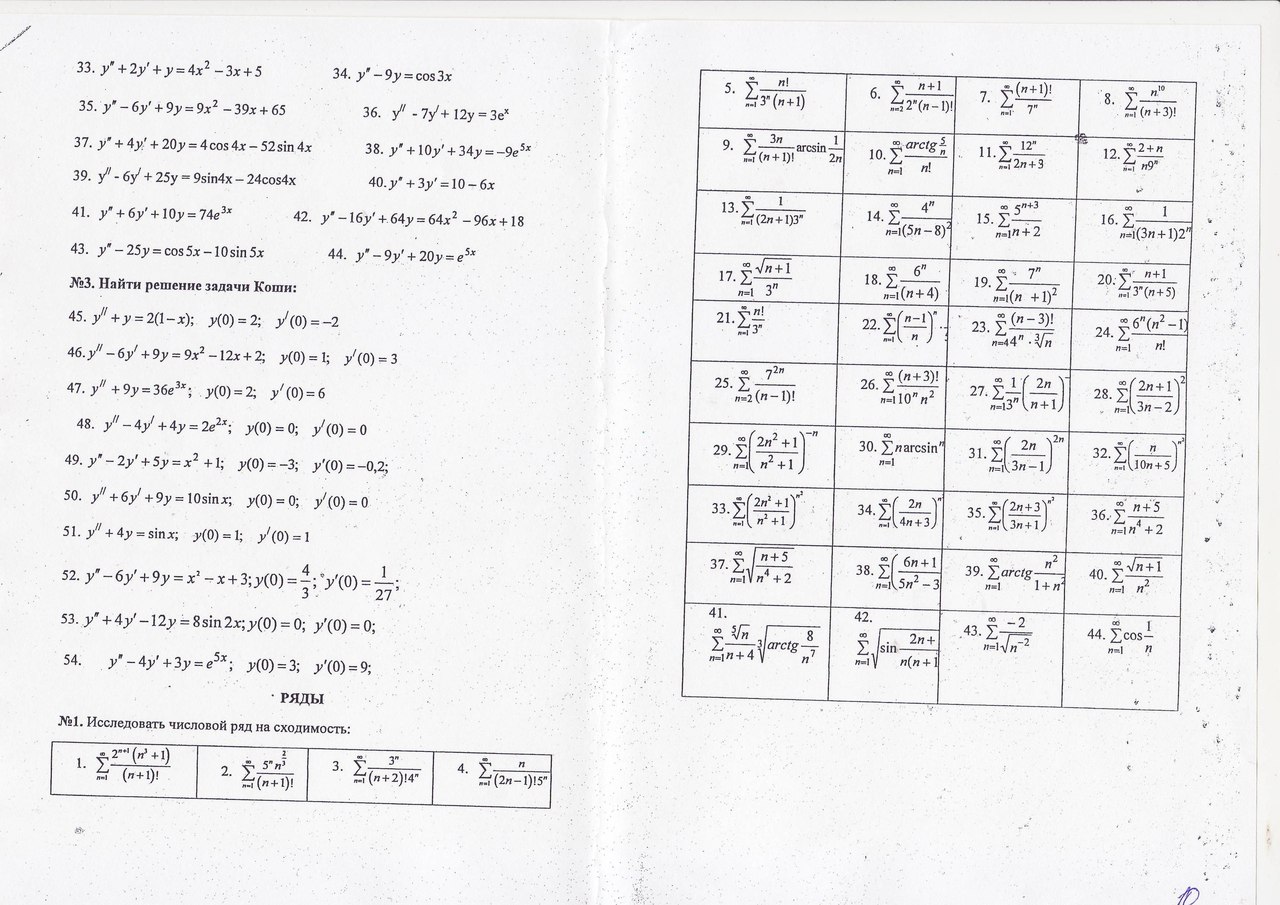 33. y″ + 2y′ + y = 4x² − 3x + 5
34. y″ − 9y = cos 3x
35. y″ − 6y′ + 9y = 9x² − 39x + 65
36. y// - 7y/ + 12y = 3eˣ
37. y″ + 4y′ + 20y = 4 cos 4x − 52 sin 4x
38. y″ + 10y′ + 34y = −9e⁵ˣ
39. y// - 6y/ + 25y = 9sin4x − 24cos4x
40. y″ + 3y′ = 10 − 6x
41. y″ + 6y′ + 10y = 74e³ˣ
42. y″ − 16y′ + 64y = 64x² − 96x + 18
43. y″ − 25y = cos 5x − 10 sin 5x
44. y″ − 9y′ + 20y = e⁵ˣ
№3. Найти решение задачи Коши:
45. y// + y = 2(1− x); y(0) = 2; y/(0) = −2
46. y// − 6y/ + 9y = 9x² − 12x + 2; y(0) = 1; y/(0) = 3
47. y// + 9y = 36e³ˣ; y(0) = 2; y/(0) = 6
48. y// − 4y/ + 4y = 2e²ˣ; y(0) = 0; y/(0) = 0
49. y″ − 2y′ + 5y = x² + 1; y(0) = −3; y′(0) = −0,2;
50. y// + 6y/ + 9y = 10sin x; y(0) = 0; y/(0) = 0
51. y// + 4y = sin x; y(0) = 1; y/(0) = 1
52. y″ − 6y′ + 9y = x² − x + 3; y(0) = 4/3; y′(0) = 1/27;
53. y″ + 4y′ − 12y = 8 sin 2x; y(0) = 0; y′(0) = 0;
54. y″ − 4y′ + 3y = e⁵ˣ; y(0) = 3; y′(0) = 9;
РЯДЫ
№1. Исследовать числовой ряд на сходимость:
1. ∑ₙ₌₁^∞ 2ⁿ⁺¹(n³ + 1)/(n + 1)!
2. ∑ₙ₌₁^∞ 5ⁿ n^(2/3)/(n + 1)!
3. ∑ₙ₌₁^∞ 3ⁿ/(n + 2)!4ⁿ
4. ∑ₙ₌₁^∞ n/(2n − 1)!5ⁿ
5. ∑ₙ₌₁^∞ n!/3ⁿ(n + 1)
6. ∑ₙ₌₂^∞ n + 1/2ⁿ(n − 1)!
7. ∑ₙ₌₁^∞ (n + 1)!/7ⁿ
8. ∑ₙ₌₁^∞ n¹⁰/(n + 3)!
9. ∑ₙ₌₁^∞ 3n/(n + 1)! arcsin 1/2n
10. ∑ₙ₌₁^∞ arctg 5/n / n!
11. ∑ₙ₌₁^∞ 12ⁿ/2n + 3
12. ∑ₙ₌₁^∞ 2 + n/n9ⁿ
13. ∑ₙ₌₁^∞ 1/(2n + 1)3ⁿ
14. ∑ₙ₌₁^∞ 4ⁿ/(5n − 8)²
15. ∑ₙ₌₁^∞ 5ⁿ⁺³/n + 2
16. ∑ₙ₌₁^∞ 1/(3n + 1)2ⁿ
17. ∑ₙ₌₁^∞ √(n + 1)/3ⁿ
18. ∑ₙ₌₁^∞ 6ⁿ/(n + 4)
19. ∑ₙ₌₁^∞ 7ⁿ/(n + 1)²
20. ∑ₙ₌₁^∞ n + 1/3ⁿ(n + 5)
21. ∑ₙ₌₁^∞ n!/3ⁿ
22. ∑ₙ₌₁^∞ (n − 1/n)ⁿ
23. ∑ₙ₌₄^∞ (n − 3)!/4ⁿ · ∛n
24. ∑ₙ₌₁^∞ 6ⁿ(n² − 1)/n!
25. ∑ₙ₌₂^∞ 7²ⁿ/(n − 1)!
26. ∑ₙ₌₁^∞ (n + 3)!/10ⁿ n²
27. ∑ₙ₌₁^∞ 1/3ⁿ (2n/n + 1)
28. ∑ₙ₌₁^∞ (2n + 1/3n − 2)²
29. ∑ₙ₌₁^∞ (2n² + 1/n² + 1)⁻ⁿ
30. ∑ₙ₌₁^∞ n arcsinⁿ
31. ∑ₙ₌₁^∞ (2n/3n − 1)²ⁿ
32. ∑ₙ₌₁^∞ (n/10n + 5)^n²
33. ∑ₙ₌₁^∞ (2n² + 1/n² + 1)^n²
34. ∑ₙ₌₁^∞ (2n/4n + 3)ⁿ
35. ∑ₙ₌₁^∞ (2n + 3/3n + 1)^n²
36. ∑ₙ₌₁^∞ n + 5/n⁴ + 2
37. ∑ₙ₌₁^∞ √(n + 5/n⁴ + 2)
38. ∑ₙ₌₁^∞ (6n + 1/5n² − 3
39. ∑ₙ₌₁^∞ arctg n²/1 + n²
40. ∑ₙ₌₁^∞ √(n + 1)/n²
41. ∑ₙ₌₁^∞ ⁵√n/n + 4 ∛(arctg 8/n⁷)
42. ∑ₙ₌₁^∞ √(sin 2n +/n(n + 1
43. ∑ₙ₌₁^∞ −2/√n⁻²
44. ∑ₙ₌₁^∞ cos 1/n
10